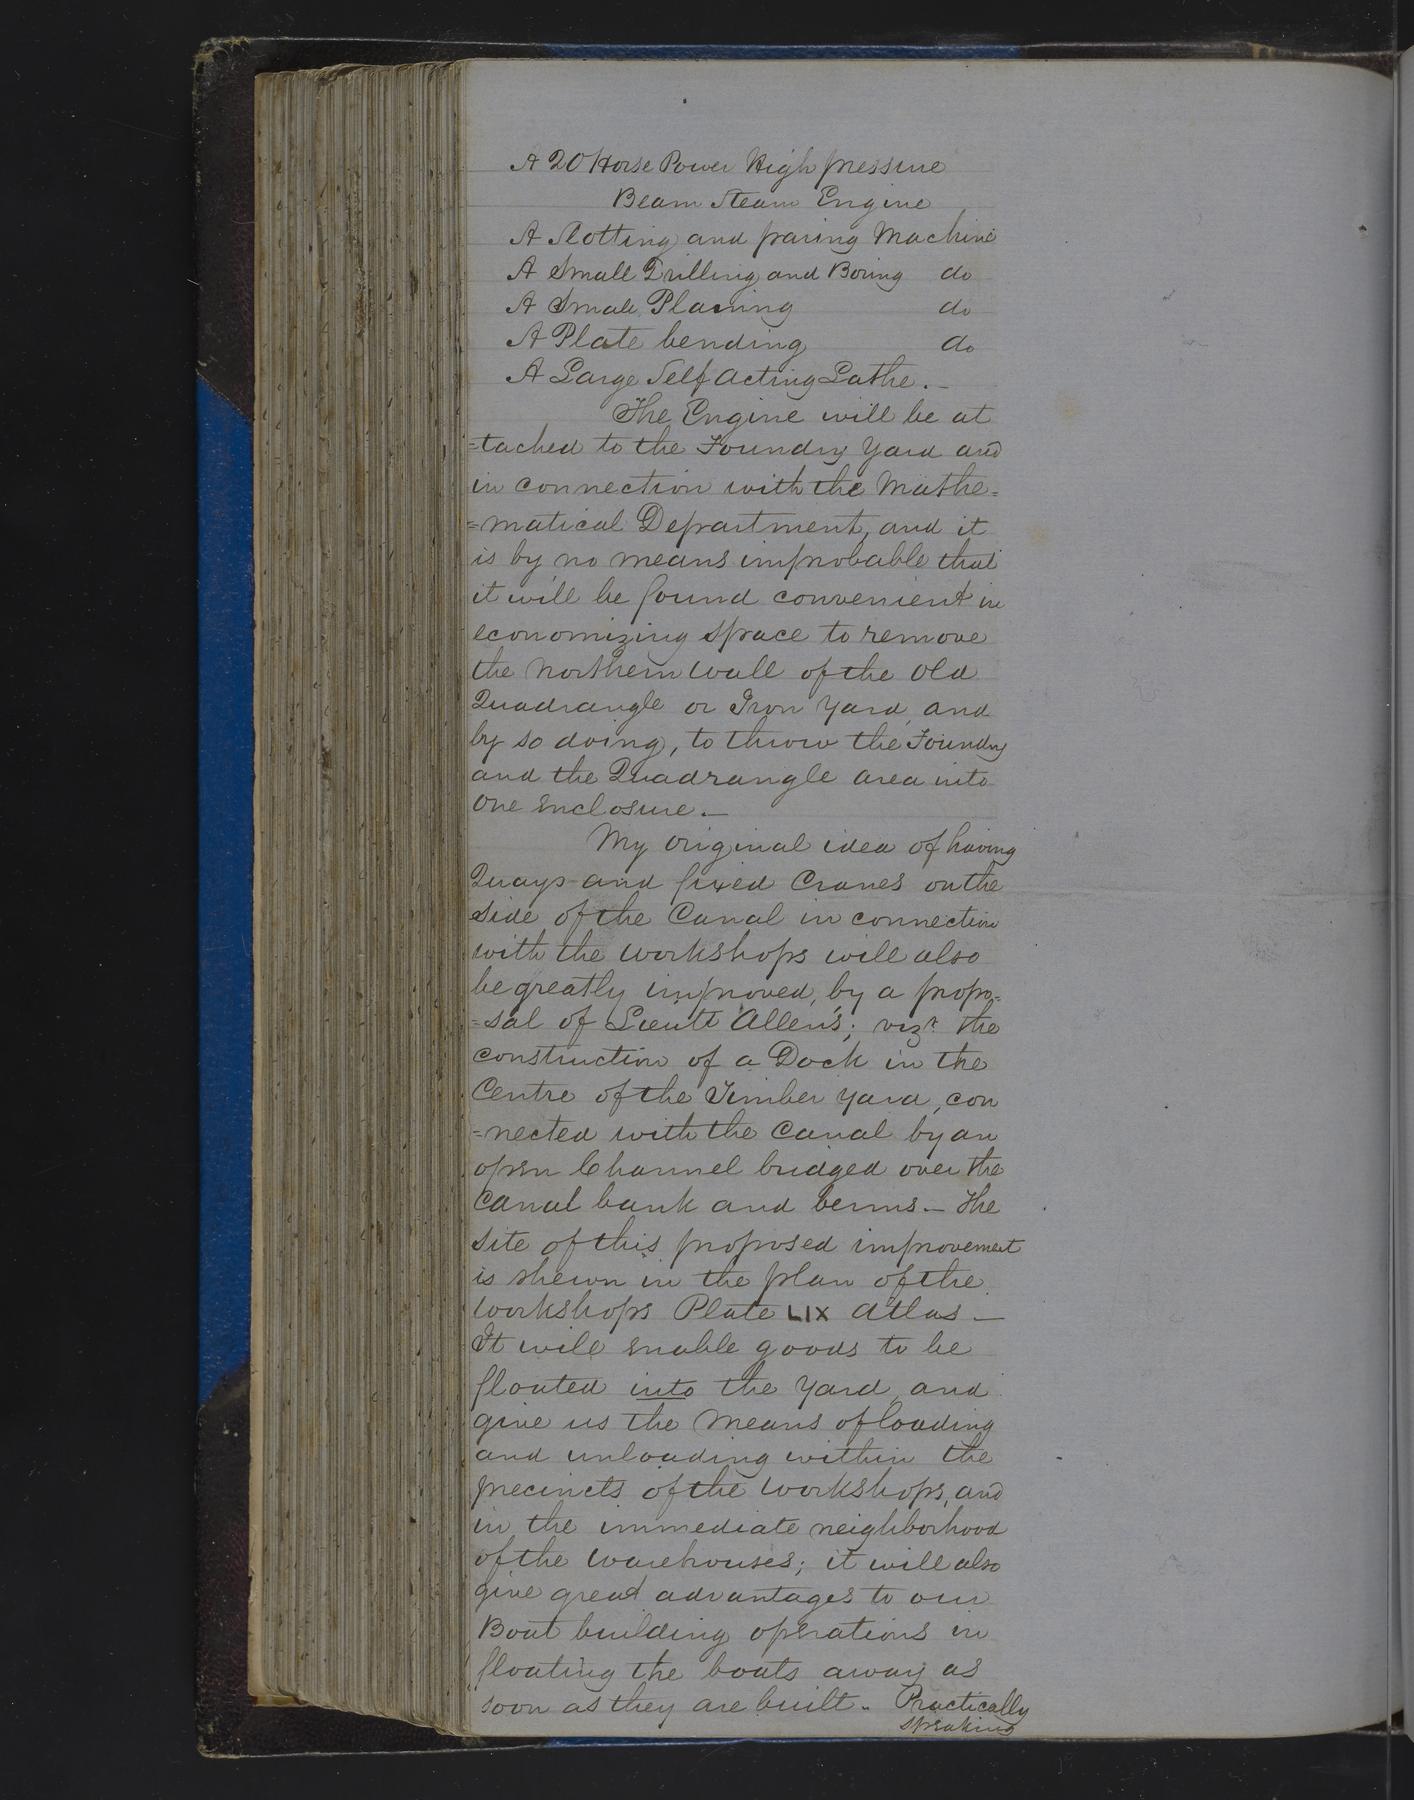 A 20 Horse Power High pressure
Beam Steam Engine
A Slotting and paring Machine
A Small Drilling and Boring do
A Small Planing do
A Plate bending do
A Large Self Acting Lathe.—
The Engine will be at
=tached to the Foundry Yard and
in connection with the Mathe=
=matical Department, and it
is by no means improbable that
it will be found convenient in
economizing space to remove
the Northern wall of the Old
Quadrangle or Iron Yard, and
by so doing, to throw the Foundry
and the Quadrangle area into
One enclosure.—
My original idea of having
Quays and fixed Cranes on the
side of the Canal in connection
with the workshops will also
be greatly improved, by a propo=
=sal of Lieutt Allen's; vizt the
construction of a Dock in the
Centre of the Timber Yard, con
=nected with the Canal by an
open Channel bridged over the
Canal bank and berms.— The
site of this proposed improvement
is shewn in the plan of the
workshops Plate LIX Atlas—
It will enable goods to be
floated into the Yard, and
give us the means of loading
and unloading within the
precincts of the workshops, and
in the immediate neighborhood
of the warehouses; it will also
give great advantages to our
Boat building operations in
floating the boats away as
soon as they are built.- Practically
speaking